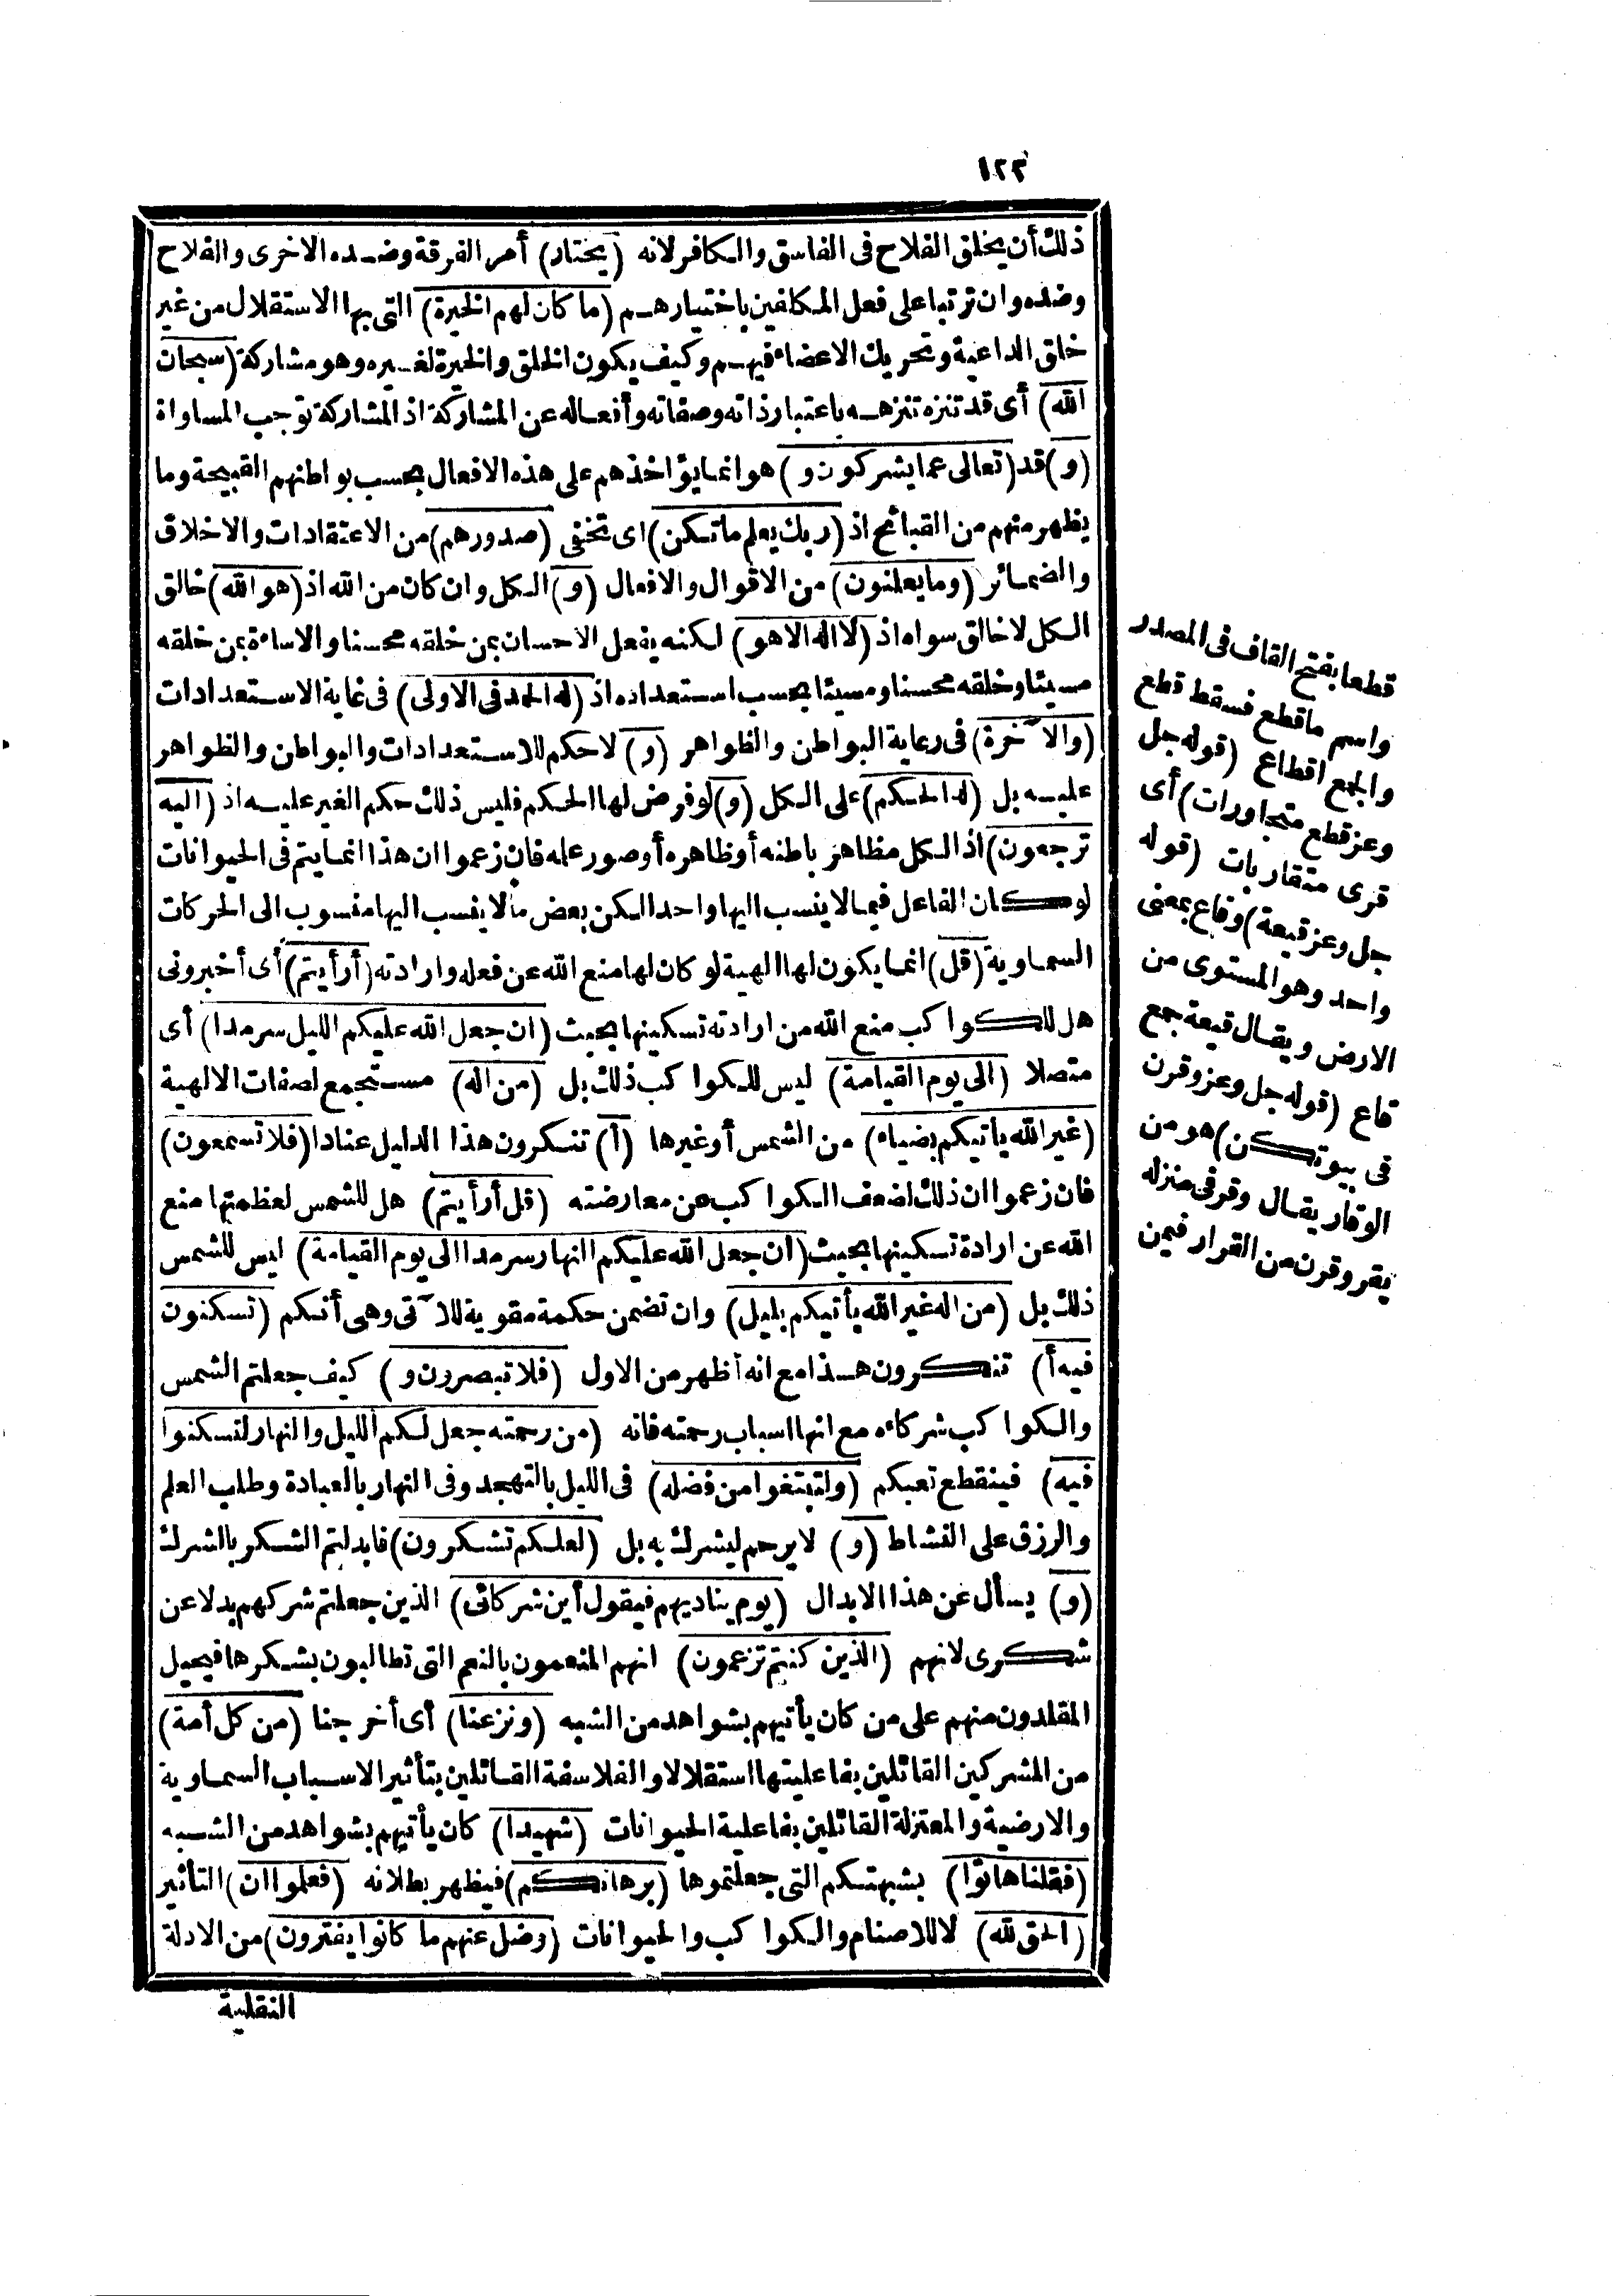 ١٢٣
ذلك أن يخلق الفلاح فى الفاسق والكافر لانه (يختار) أمر الفرقة وضده الاخرى والفلاح
وضده وان ترتبا على فعل المكلفين باختيارهم (ما كان لهم الخيرة) التى بها الاستقلال من غير
خلق الداعية وتحريك الاعضاء فيهم وكيف يكون الخلق والخيرة لغيره وهو مشاركة (سبحان
الله) أى قد تنزه تنزهه باعتبار ذاته وصفاته وأفعاله عن المشاركة اذ المشاركة توجب المساواة
(و) قد (تعالى عما يشركون و) هو انما يؤاخذهم على هذه الافعال بحسب بواطنهم القبيحة وما
يظهر منهم من القبائح اذ (ربك يعلم ما تكن) اى تخفى (صدورهم) من الاعتقادات والاخلاق
والضمائر (وما يعلنون) من الاقوال والافعال (و) الكل وان كان من الله اذ (هو الله) خالق
الكل لا خالق سواه اذ (لا اله الا هو) لكنه يفعل الاحسان بمن خلقه محسنا والاساءة بمن خلقه
مسيئا وخلقه محسنا ومسيئا بحسب استعداده اذ (له الحمد فى الاولى) فى غاية الاستعدادات
(والآخرة) فى رعاية البواطن والظواهر (و) لا حكم للاستعدادات والبواطن والظواهر
عليه بل (له الحكم) على الكل (و) لو فرض لها الحكم فليس ذلك حكم الغير عليه اذ (اليه
ترجعون) اذ الكل مظاهر باطنه أو ظاهره أو صور علمه فان زعموا ان هذا انما يتم فى الحيوانات
لو كان الفاعل فيما لا ينسب اليها واحدا لكن بعض ما لا ينسب اليها منسوب الى الحركات
السماوية (قل) انما يكون لها الهية لو كان لها منع الله عن فعله وارادته (أرأيتم) أى أخبرونى
هل للكواكب منع الله من ارادته تسكينها بحيث (ان جعل الله عليكم الليل سرمدا) أى
متصلا (الى يوم القيامة) ليس للكواكب ذلك بل (من اله) مستجمع لصفات الالهية
(غير الله يأتيكم بضياء) من الشمس أو غيرها (أ) تنكرون هذا الدليل عنادا (فلا تسمعون)
فان زعموا ان ذلك لضعف الكواكب عن معارضته (قل أرأيتم) هل للشمس لعظمتها منع
الله عن ارادة تسكينها بحيث (ان جعل الله عليكم النهار سرمدا الى يوم القيامة) ليس للشمس
ذلك بل (من اله غير الله يأتيكم بليل) وان تضمن حكمة مقوية للآتى وهى أنكم (تسكنون
فيه أ) تنكرون هذا مع انه أظهر من الاول (فلا تبصرون و) كيف جعلتم الشمس
والكواكب شركاءه مع انها اسباب رحمته فانه (من رحمته جعل لكم الليل والنهار لتسكنوا
فيه) فينقطع تعبكم (ولتبتغوا من فضله) فى الليل بالتهجد وفى النهار بالعبادة وطلب العلم
والرزق على النشاط (و) لا يرحم ليشرك به بل (لعلكم تشكرون) فابدلتم الشكر بالشرك
(و) يسأل عن هذا الابدال (يوم يناديهم فيقول أين شركائى) الذين جعلتم شركهم بدلا عن
شكرى لانهم (الذين كنتم تزعمون) انهم المنعمون بالنعم التى تطالبون بشكرها فيحيل
المقلدون منهم على من كان يأتيهم بشواهد من الشبه (ونزعنا) أى أخرجنا (من كل أمة)
من المشركين القائلين بفاعليتها استقلالا والفلاسفة القائلين بتأثير الاسباب السماوية
والارضية والمعتزلة القائلين بفاعلية الحيوانات (شهيدا) كان يأتيهم بشواهد من الشبه
(فقلنا هاتوا) بشبهتكم التى جعلتموها (برهانكم) فيظهر بطلانه (فعلموا ان) التأثير
(الحق لله) لا للاصنام والكواكب والحيوانات (وضل عنهم ما كانوا يفترون) من الادلة
النقلية
قطعا بفتح القاف فى المصدر
واسم ما قطع فسقط قطع
والجمع اقطاع (قوله جل
وعز قطع متجاورات) أى
قرى متقاربات (قوله
جل وعز قيعة) وقاع بمعنى
واحد وهو المستوى من
الارض ويقال قيعة جمع
قاع (قوله جل وعز وقرن
فى بيوتكن) هو من
الوقار يقال وقر فى منزله
يقر وقرن من القرار فيمن